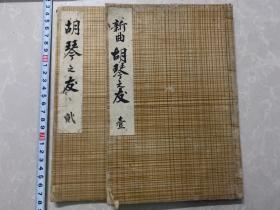 新曲 胡琴之友 壹
胡琴之友 貮